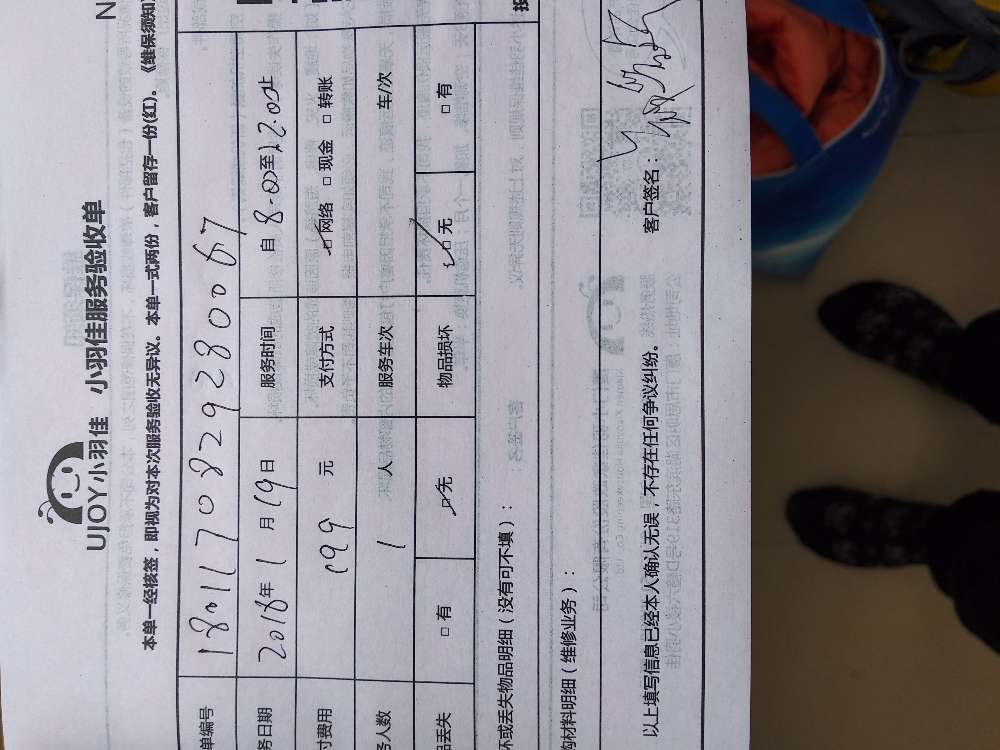 N
UJOY小羽佳 小羽佳服务验收单
本单一经核签，即视为对本次服务验收无异议。本单一式两份，客户留存一份(红)。《维保须知
单编号 1801170829280067
务日期 2018年1月19日 服务时间 自8:00至12:00止
付费用 199 元 支付方式 ☑网络 □现金 □转账
务人数 1 人 服务车次 车/次
品丢失 □有 ☑无 物品损坏 ☑无 □有
坏或丢失物品明细（没有可不填）：
购材料明细（维修业务）：
以上填写信息已经本人确认无误，不存在任何争议纠纷。 客户签名：